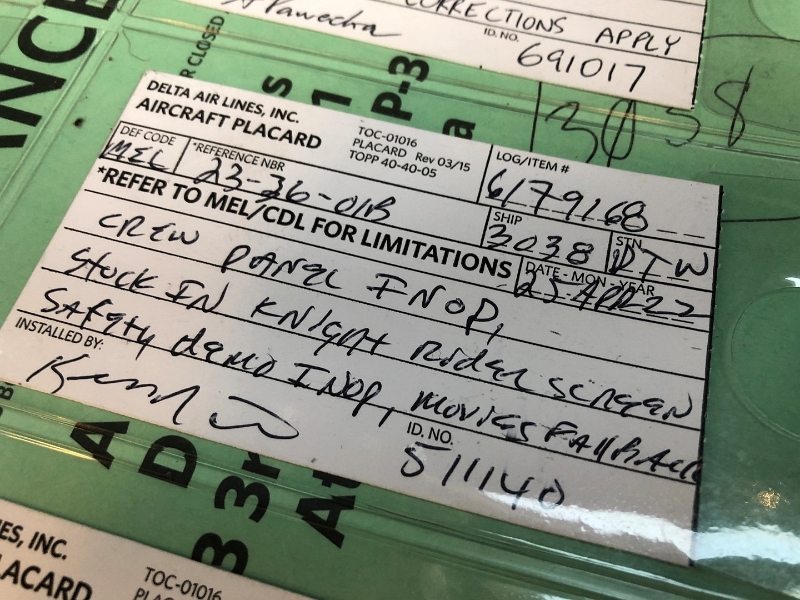 CORRECTIONS APPLY
ID. NO.
691017
R CLOSED
3038
DELTA AIR LINES, INC.
AIRCRAFT PLACARD
TOC-01016
PLACARD Rev 03/15
TOPP 40-40-05
LOG/ITEM #
6179168
DEF CODE
MEL
*REFERENCE NBR
23-36-01B
SHIP
3038
STN
DTW
*REFER TO MEL/CDL FOR LIMITATIONS
DATE - MON - YEAR
25 APR 22
CREW PANEL INOP,
Stuck IN KNIGHT RIDER SCREEN
SAFETY demo INOP, MOVIES FALLBACK
INSTALLED BY:
ID. NO.
511140
P-3
A D
B 3
ES, INC.
LACARD
TOC-01016